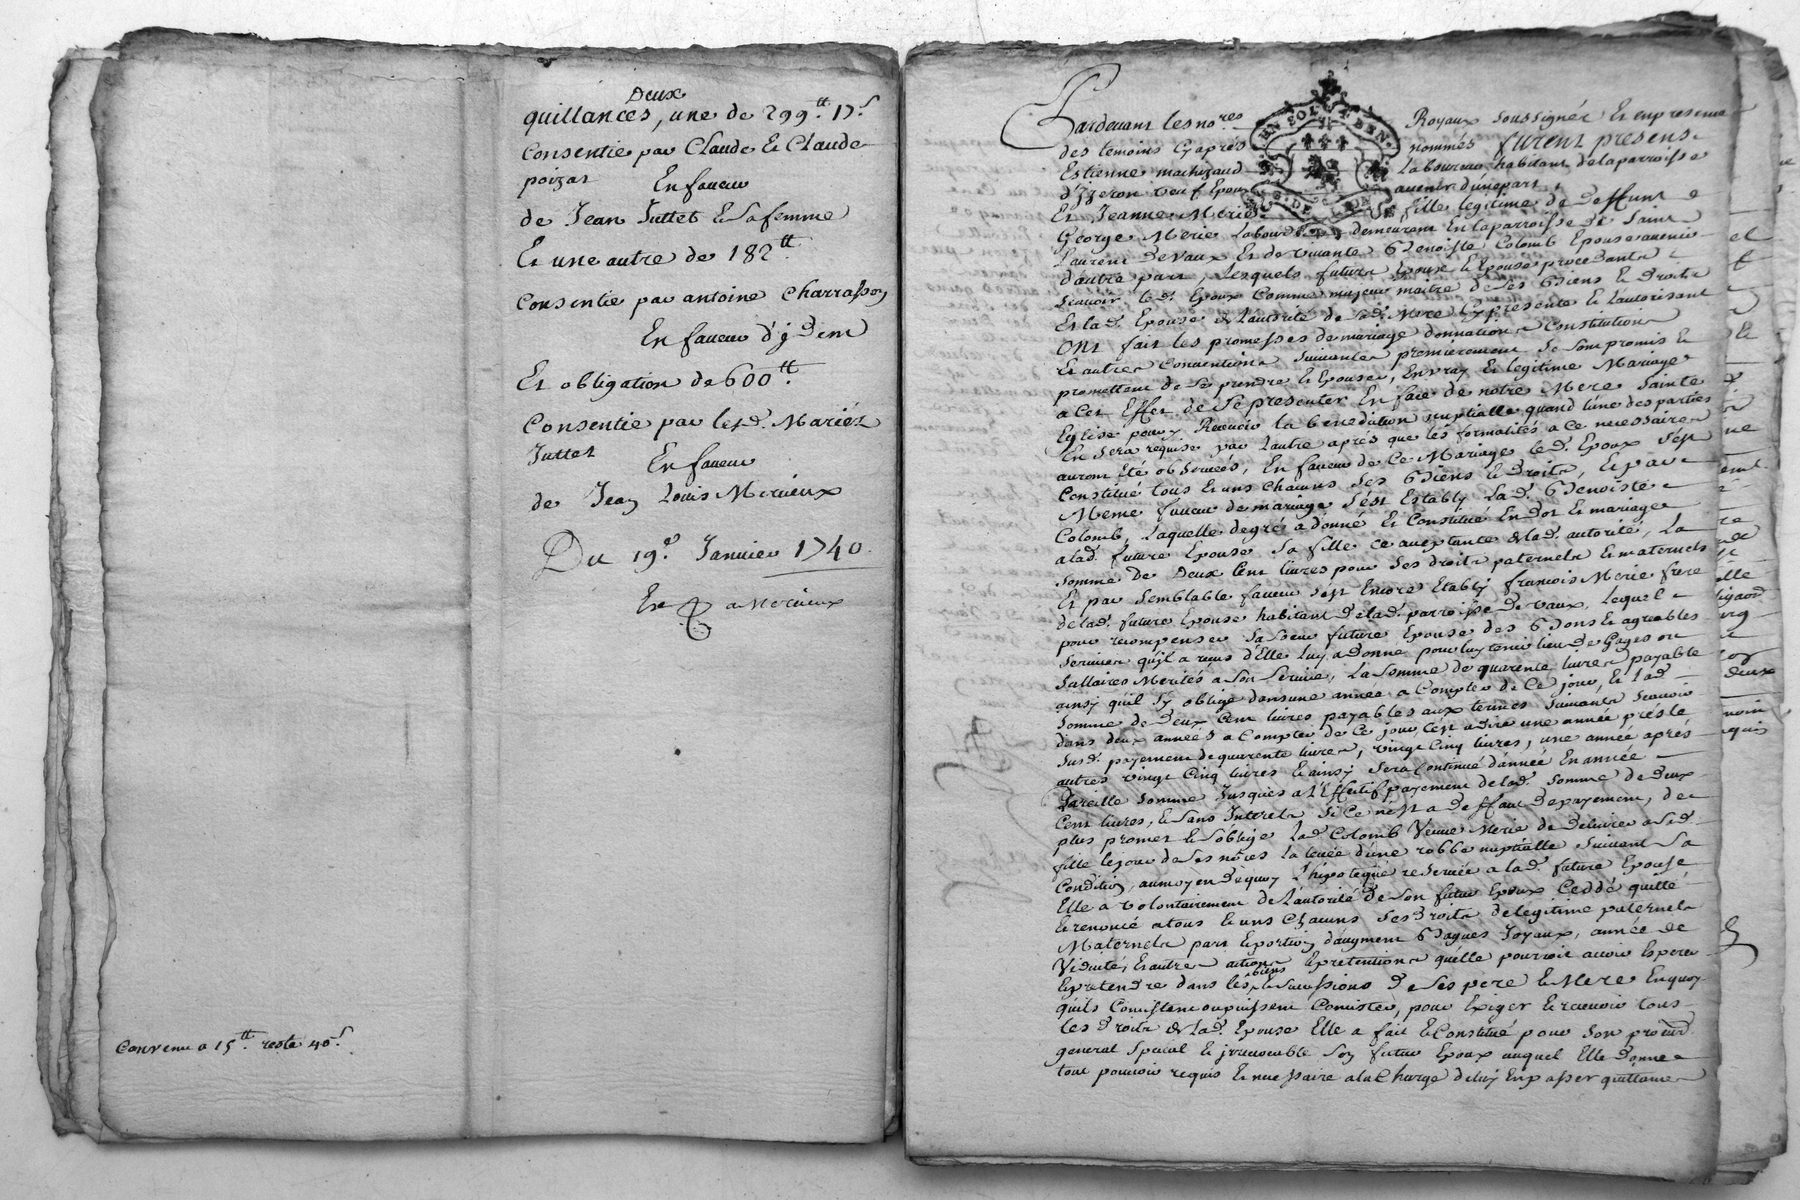 Deux
quittances, une de 299.tt 17.s
Consentie par Claude & Claude
poizat En faveur
de Jean Juttet & sa femme
Et une autre de 182tt
Consentie par antoine Charrasson
En faveur d'ydem
Et obligation de 600tt.
Consentie par lesd. Mariéz
Juttet En faveur
de Jean Louis Merieux
Du 19e. Janvier 1740.
Ex
Convenu a 15tt. reste 40s.
Pardevant les no.res Royaux soussignéz Et en presence
des temoins cy aprés nommés furent presens
Estienne machizaud Laboureur habitant de la parroisse
d'Yzeron veuf Epoux avenir d'une part,
Et Jeanne Merie fille legitime de deffunt
George Merie Laboureur demeurant En la parroisse de Saint
Laurent de Vaux Et de vivante Benoiste Colomb Epouse avenir
d'autre part Lesquels futurs Epoux & Epouse procedants
scavoir led. Epoux Comme majeur maitre de ses Biens & Droits
Et lad. Epouse de L'autorité de sad. Mere Cy presente & L'autorisant
ont fait les promesses de mariage donnations Constitutions
Et autres Conventions suivantes premierement se sont promis &
promettent de se prendre & Epouser, En vray & legitime Mariage
a Cet Effet de se presenter En face de notre Mere Sainte
Eglise pour y Recevoir la benediction nuptialle quand l'une des parties
En sera requise par L'autre aprés que les formalités a ce necessaires
auront été observées, En faveur de Ce Mariage led. Epoux s'est
Constitué tous & uns Chacuns ses Biens & Droits, Et par
Meme faveur de mariage s'est Estably Lad. Benoiste
Colomb, Laquelle de gré a donné Et Constitué En dot Et mariage
a lad. future Epouse sa fille ce aceptante de lad. autorité, La
somme de Deux Cent livres pour ses droits paternels & maternels
Et par semblable faveur s'est Encore Etably francois Merie frere
de lad. future Epouse habitant de lad. parroisse de Vaux, Lequel
pour recompenser sa soeur future Epouse des Bons & agreables
services qu'il a reçus d'Elle Luy a donné pour luy tenir lieu de Gages ou
sallaires Merités a son service, La somme de quarente livres payable
ainsy qu'il s'y oblige dans une année a Compter de Ce jour, & lad.
somme de Deux Cent livres payables aux termes suivants scavoir
dans deux années a Compter de Ce jour, C'est a dire une année prés le
susd. payement de quarente livres, vingt Cinq livres, une année aprés
autres vingt Cinq livres & ainsy sera Continué d'année En année
Pareille somme Jusques a l'Effectif payement de lad. somme de Deux
Cent livres, & sans Interets si Ce n'est a Deffaut de payement, de
plus promet & s'oblige Lad. Colomb Veuve Merie de Delivrer a sad.
fille le jour de ses noces La levée d'une robbe nuptialle suivant sa
Condition, au moyen de quoy L'hipoteque reservée a lad. future Epouse
Elle a volontairement de L'autorité de son futur Epoux Ceddé quitté
& renoncé a tous & uns Chacuns ses droits de legitime paternels
Maternels part & portion d'augment Bagues Joyaux, année de
Viduité, Et autres actions & pretentions qu'elle pourroit avoir Esperer
& pretendre dans les biens & successions de ses pere & Mere En quoy
qu'ils Consistent ou puissent Consister, pour Exiger & recevoir tous
Les Droits de Lad. Epouse Elle a fait & Constitué pour son procur.
general special & irrevocable son futur Epoux auquel Elle Donne
tout pouvoir requis Et necessaire a la Charge de luy En passer quittance